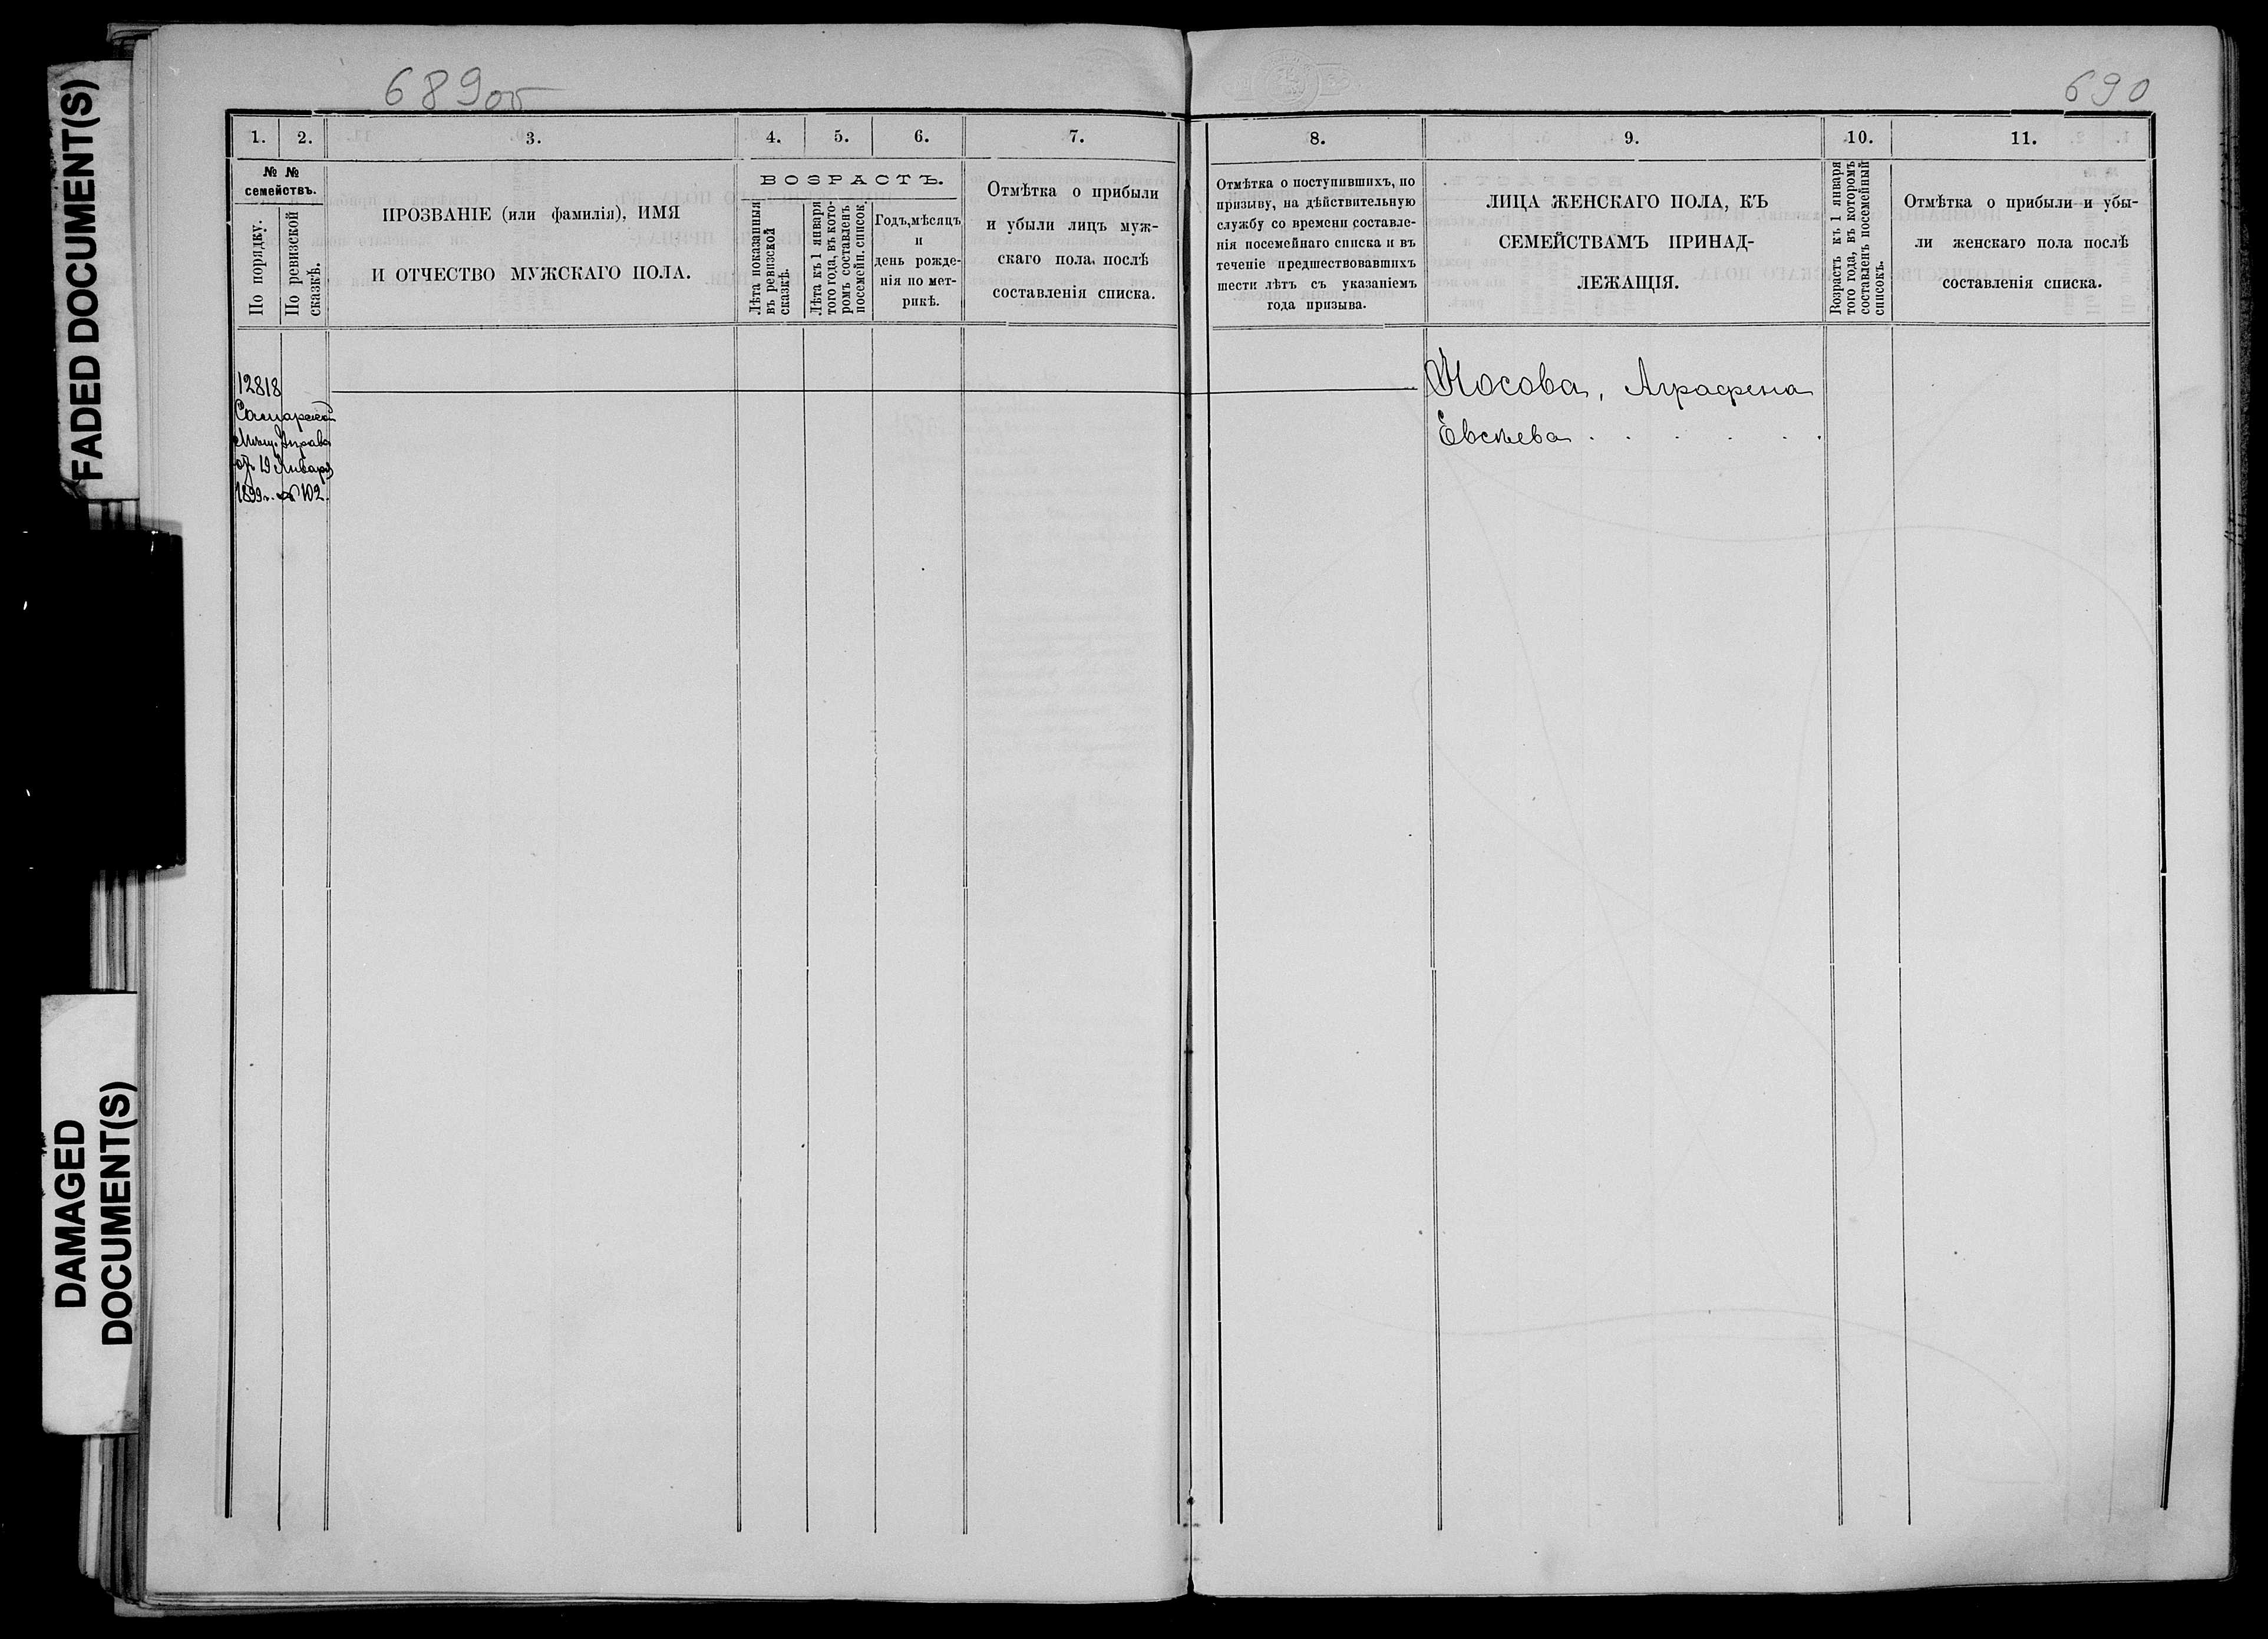 FADED DOCUMENT(S)
DAMAGED
DOCUMENT(S)
689об
690
1. 2. 3. 4. 5. 6. 7.
№ №
семействъ.
По порядку.
По ревизской
сказкѣ.
ПРОЗВАНІЕ (или фамилія), ИМЯ
И ОТЧЕСТВО МУЖСКАГО ПОЛА.
ВОЗРАСТЪ.
Лѣта показанныя
въ ревизской
сказкѣ.
Лѣта къ 1 января
того года, въ кото-
ромъ составленъ
посемейн. список.
Годъ, мѣсяцъ
и
день рожде-
нія по мет-
рикѣ.
Отмѣтка о прибыли
и убыли лицъ муж-
скаго пола, послѣ
составленія списка.
12818
Самарской
Мѣщ. Управы
отъ 19 Января
1899 г. № 102.
8. 9. 10. 11.
Отмѣтка о поступившихъ, по
призыву, на дѣйствительную
службу со времени составле-
нія посемейнаго списка и въ
теченіе предшествовавшихъ
шести лѣтъ съ указаніемъ
года призыва.
ЛИЦА ЖЕНСКАГО ПОЛА, КЪ
СЕМЕЙСТВАМЪ ПРИНАД-
ЛЕЖАЩІЯ.
Возрастъ къ 1 января
того года, въ которомъ
составленъ посемейный
списокъ.
Отмѣтка о прибыли и убы-
ли женскаго пола послѣ
составленія списка.
Носова, Аграфена
Евсѣева . . . . . .